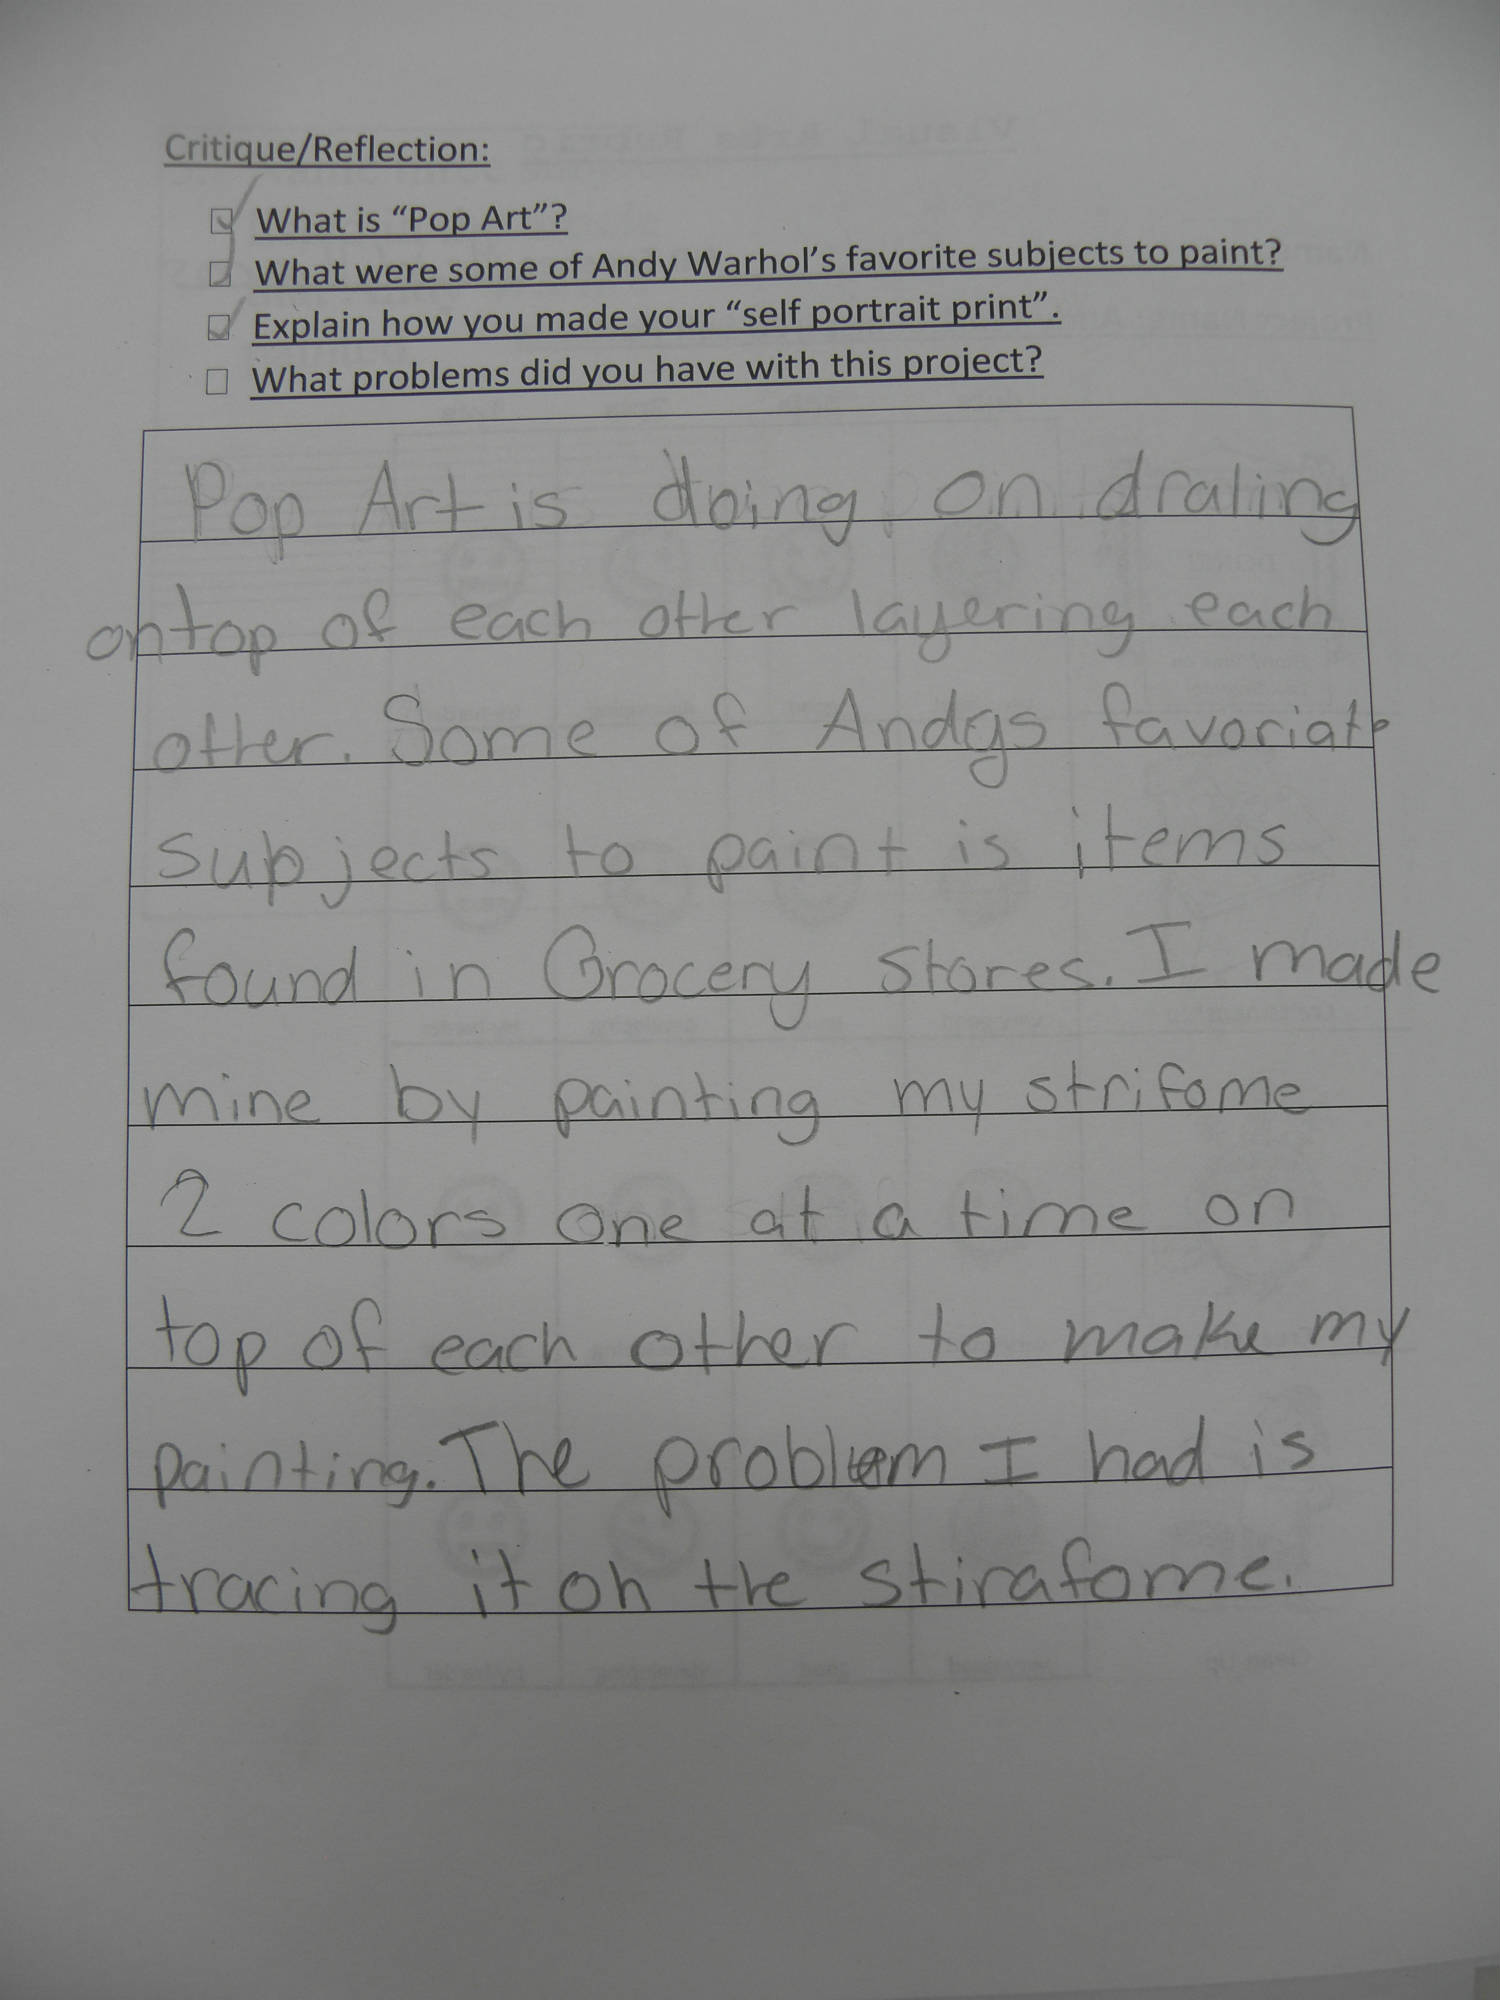 Critique/Reflection:
What is “Pop Art”?
What were some of Andy Warhol’s favorite subjects to paint?
Explain how you made your “self portrait print”.
What problems did you have with this project?
Pop Art is doing on draling
ontop of each otter layering each
otter. Some of Andys favoriate
subjects to paint is items
found in Grocery stores. I made
mine by painting my strifome
2 colors one at a time on
top of each other to make my
painting. The problem I had is
tracing it on the stirafome.